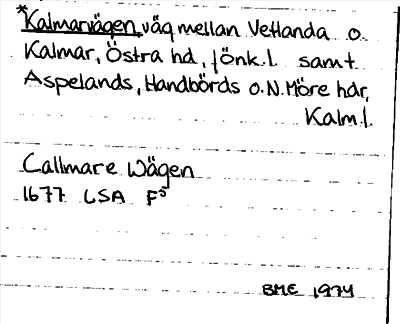 *Kalmarvägen, väg mellan Vetlanda o.
Kalmar, Östra hd, Jönk.l. samt
Aspelands, Handbörds o. N. Möre hdr,
Kalm.l.
Callmare Wägen
1677 LSA F5
BME 1974